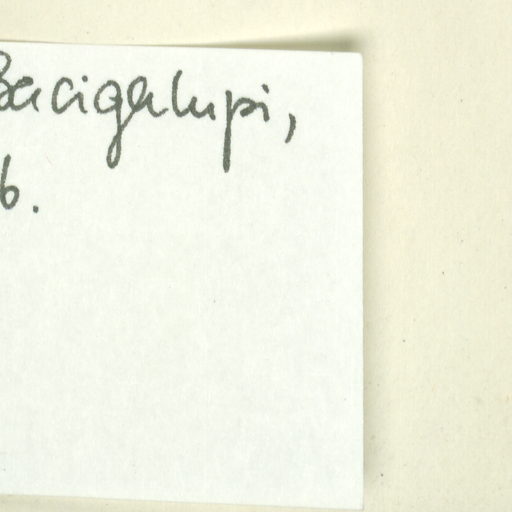 Bacigalupi,
6.